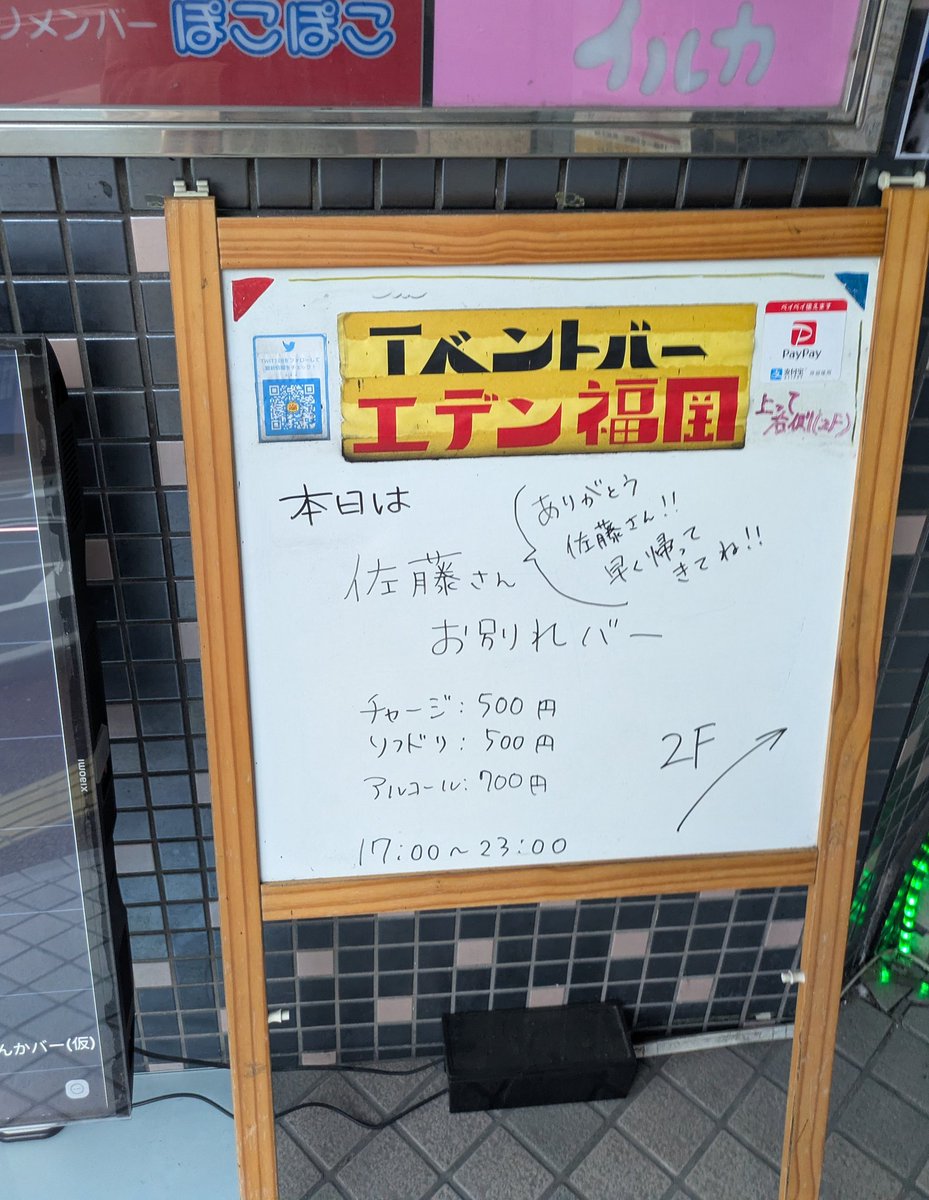 ノメンバー ぽこぽこ
イルカ
イベントバー
エデン福岡
ペイペイ使えます
PayPay
上って
右側(2F)
本日は
佐藤さん
お別れバー
ありがとう
佐藤さん!!
早く帰って
きてね!!
チャージ:500円
ソフドリ:500円
アルコール:700円
17:00~23:00
2F
xiaomi
んかバー(仮)